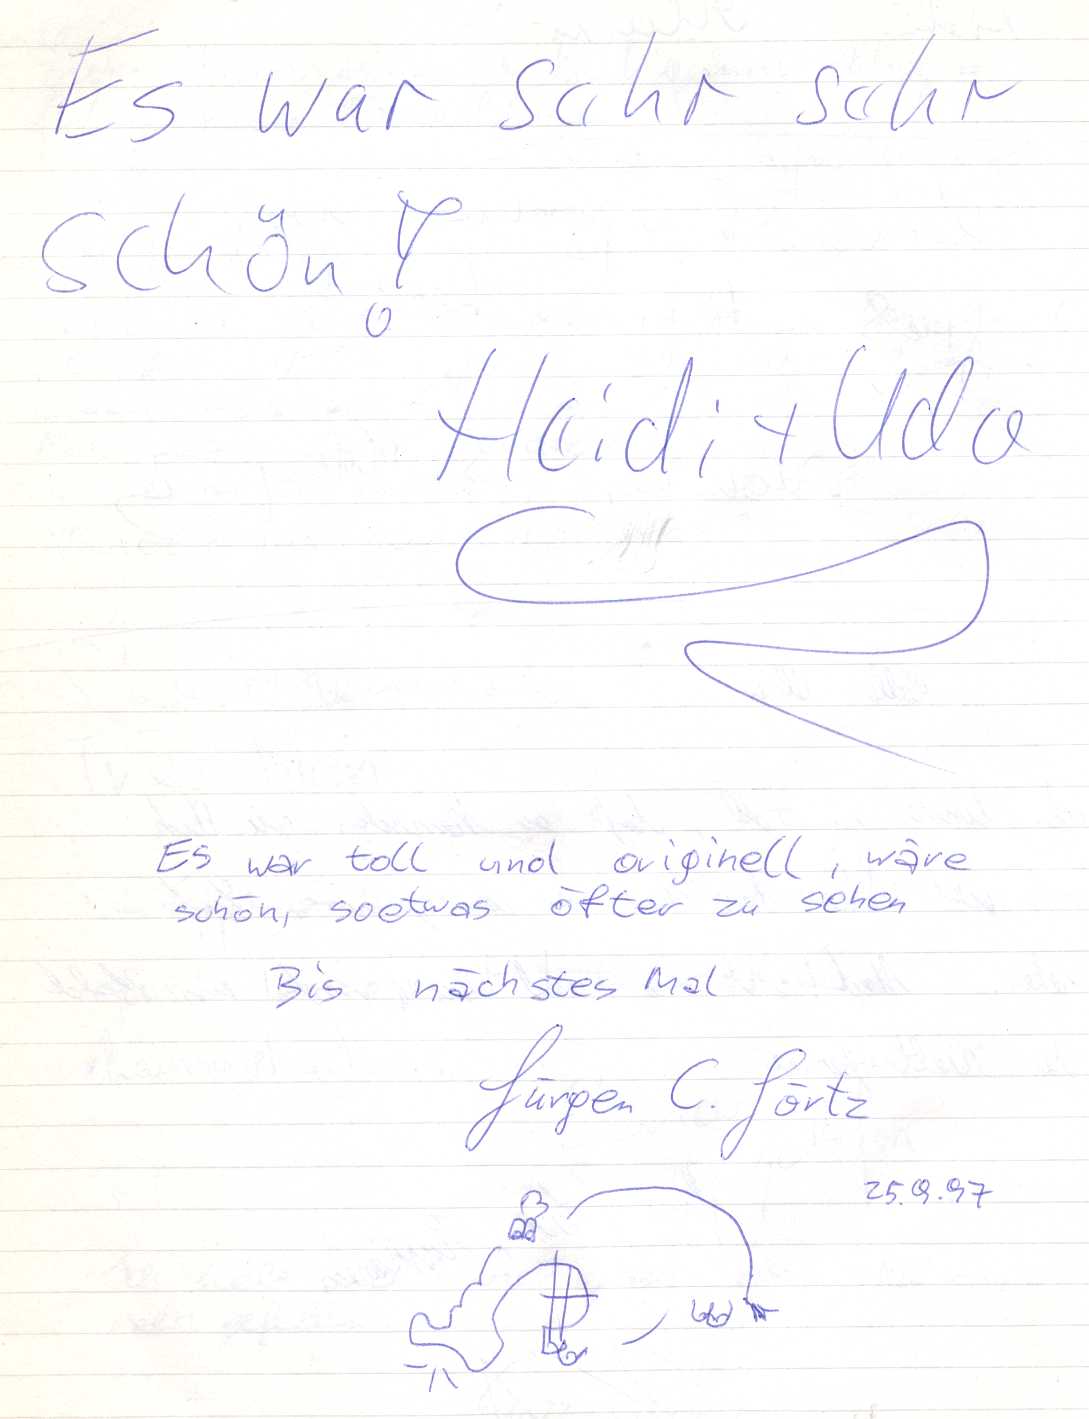 Es war sehr sehr
schön!
Heidi + Udo
Es war toll und originell, wäre
schön, soetwas öfter zu sehen
Bis nächstes Mal
Jürgen C. Görtz
25.9.97